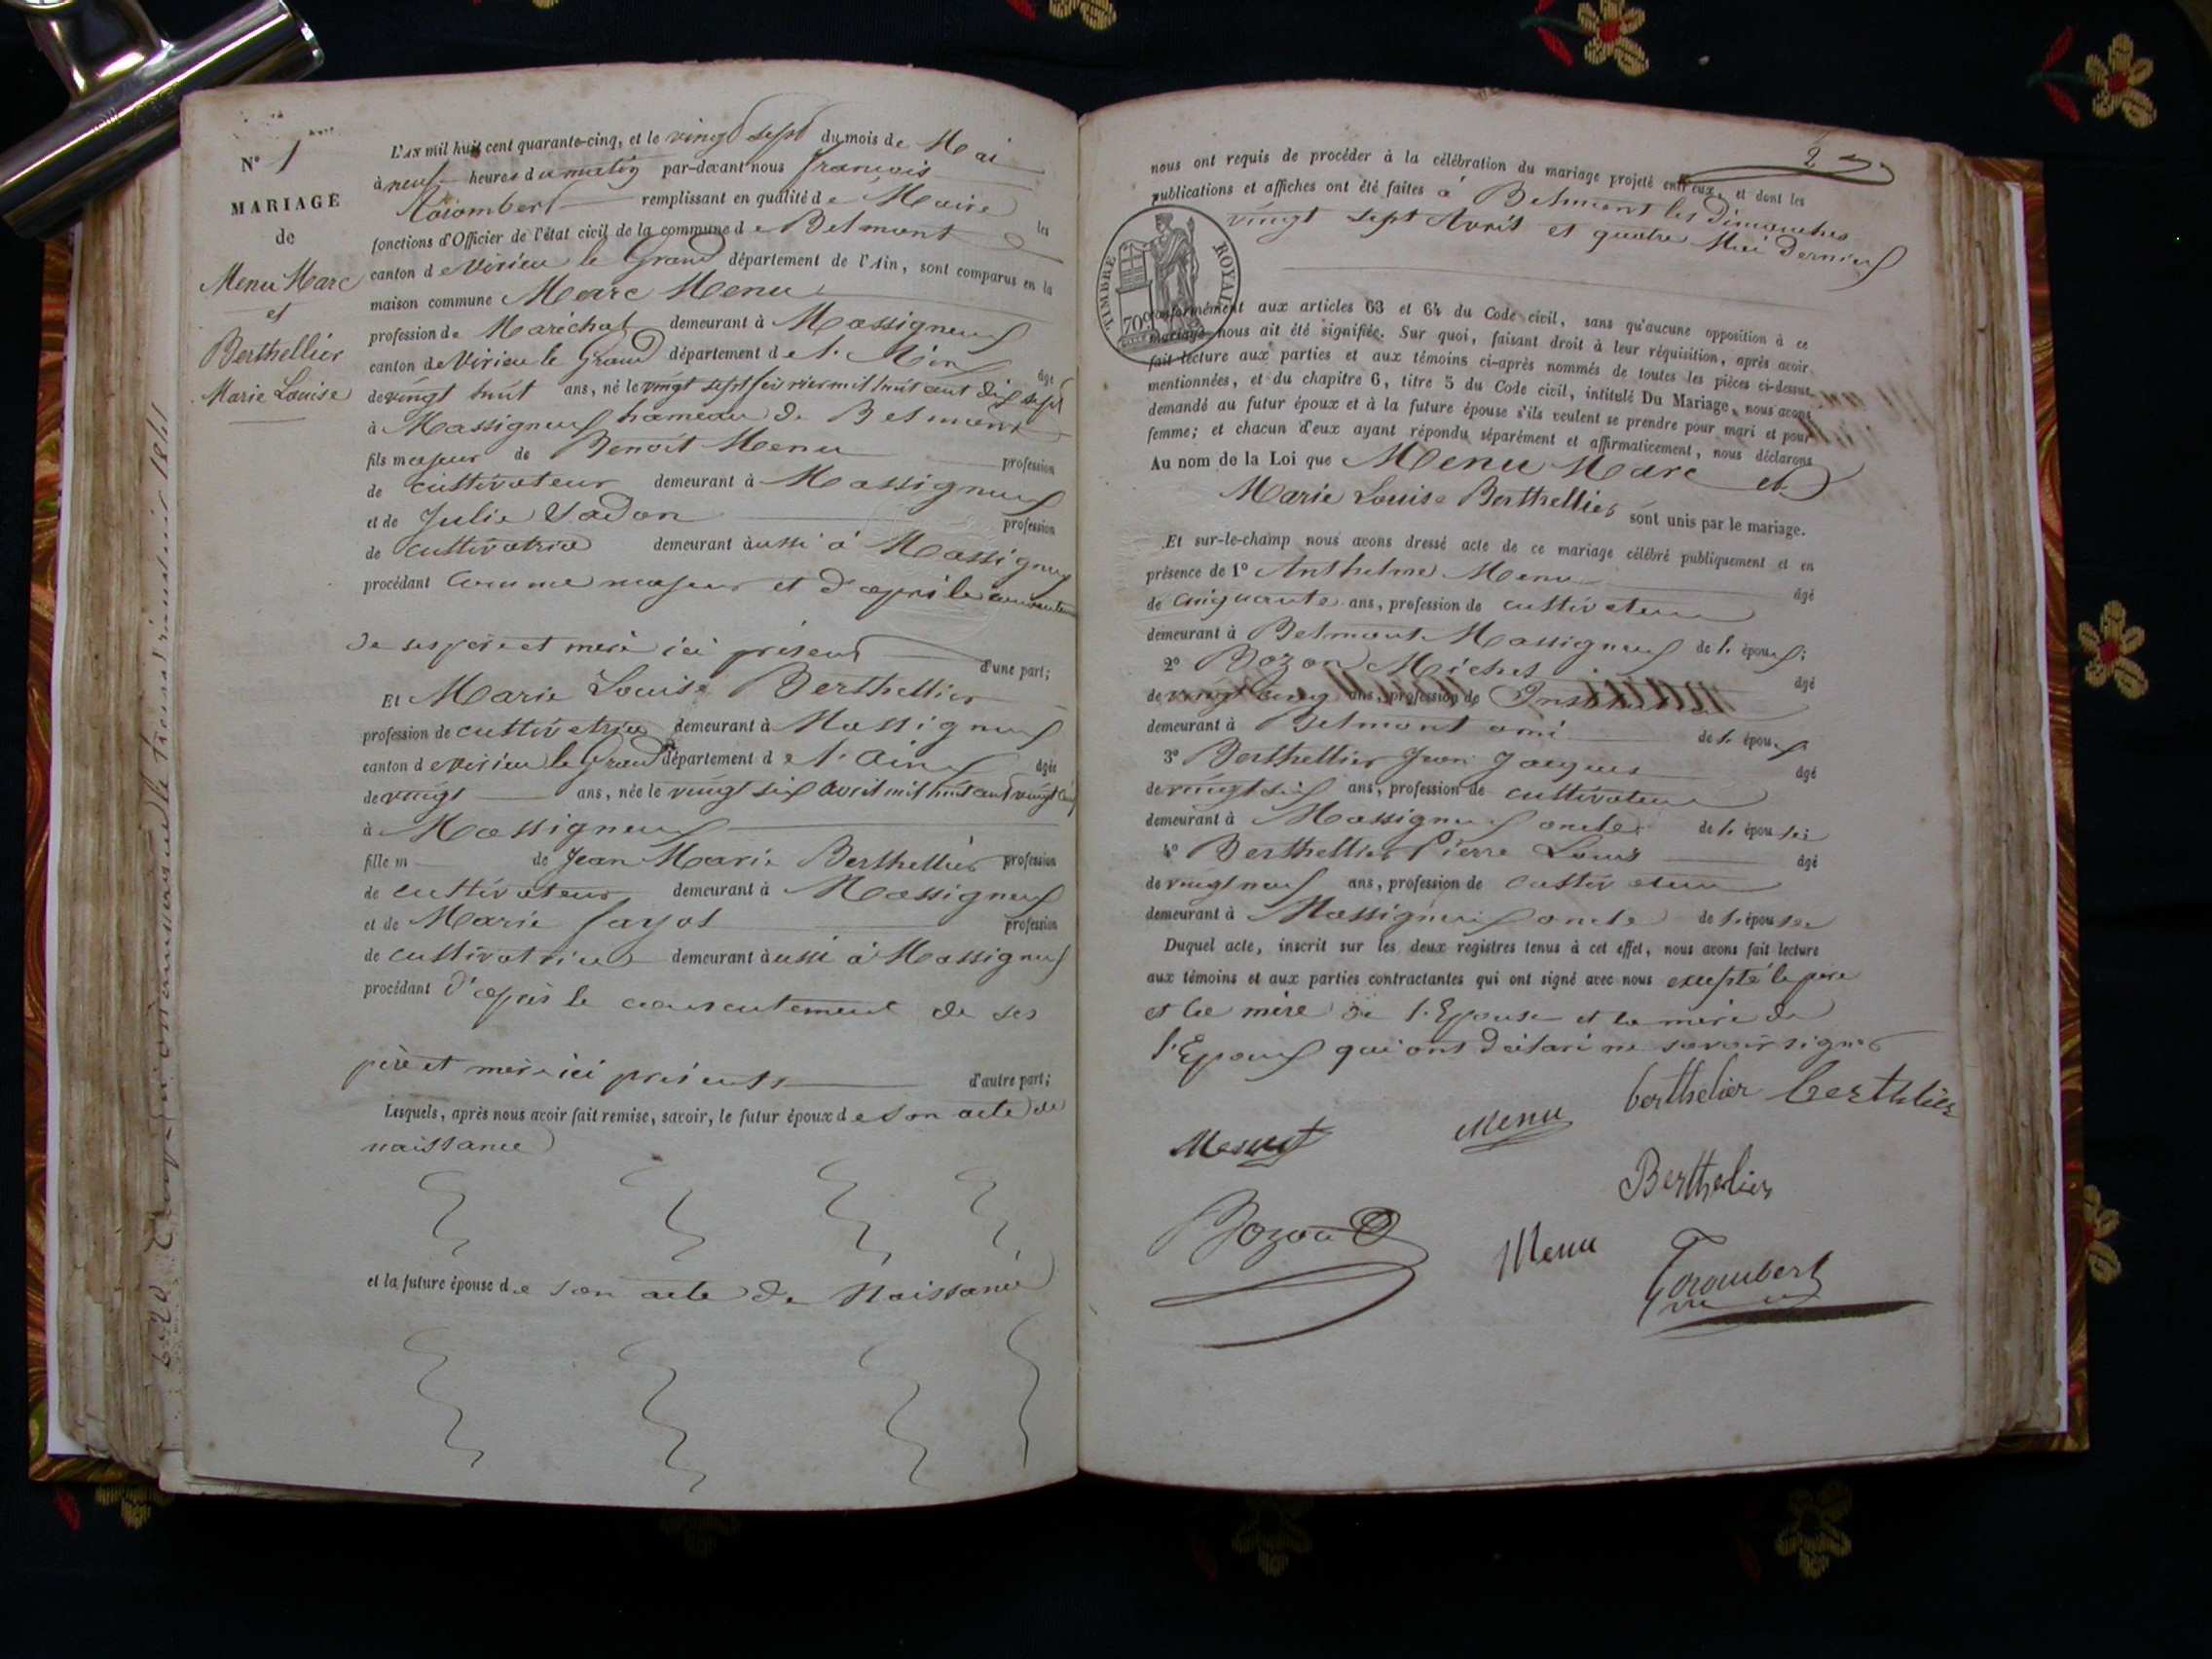 N° 1
MARIAGE
de
Menu Marc
et
Berthellier
Marie Louise
L'AN mil huit cent quarante-cinq, et le vingt sept du mois de Mai
à neuf heures du matin par-devant nous françois
remplissant en qualité de Maire les
fonctions d'Officier de l'état civil de la commune de Belmont
canton de Virieu le Grand département de l'Ain, sont comparus en la
maison commune Marc Menu
profession de Maréchal demeurant à Massigneux
canton de Virieu le Grand département de l'Ain âgé
de vingt huit ans, né le vingt sept février mil huit cent dix sept
à Massigneux hameau de Belmont
fils majeur de Benoit Menu profession
de cultivateur demeurant à Massigneux
et de Julie profession
de cultivatrice demeurant à aussi à Massigneux
procédant comme majeur et d'après le consentement
de ses père et mère ici présent d'une part;
Et Marie Louise Berthellier
profession de cultivatrice demeurant à Massigneux
canton de Virieu le Grand département de l'Ain âgée
de vingt ans, née le vingt six avril mil huit cent vingt cinq
à Massigneux
fille m de Jean Marie Berthellier profession
de cultivateur demeurant à Massigneux
et de Marie fayot profession
de cultivatrice demeurant à aussi à Massigneux
procédant d'après le consentement de ses
père et mère ici présents d'autre part;
Lesquels, après nous avoir fait remise, savoir, le futur époux de son acte de
naissance
et la future épouse de son acte de Naissance
2
nous ont requis de procéder à la célébration du mariage projeté entre eux, et dont les
publications et affiches ont été faites à Belmont les dimanches
vingt sept Avril et quatre Mai dernier
TIMBRE ROYAL
70c
conformément aux articles 63 et 64 du Code civil, sans qu'aucune opposition à ce
mariage nous ait été signifiée. Sur quoi, faisant droit à leur réquisition, après avoir
fait lecture aux parties et aux témoins ci-après nommés de toutes les pièces ci-dessus
mentionnées, et du chapitre 6, titre 5 du Code civil, intitulé Du Mariage, nous avons
demandé au futur époux et à la future épouse s'ils veulent se prendre pour mari et pour
femme; et chacun d'eux ayant répondu séparément et affirmativement, nous déclarons
Au nom de la Loi que Menu Marc et
Marie Louise Berthellier sont unis par le mariage.
Et sur-le-champ nous avons dressé acte de ce mariage célébré publiquement et en
présence de 1° Anthelme Menu âgé
de cinquante ans, profession de cultivateur
demeurant à Belmont Massigneux de l'époux;
2° Bozon Michel âgé
de vingt cinq ans, profession de
demeurant à Belmont ami de l'époux
3° Berthellier Jean Jacques âgé
de vingt six ans, profession de cultivateur
demeurant à Massigneux oncle de l'épouse;
4° Berthellier Pierre Louis âgé
de vingt neuf ans, profession de cultivateur
demeurant à Massigneux oncle de l'épouse
Duquel acte, inscrit sur les deux registres tenus à cet effet, nous avons fait lecture
aux témoins et aux parties contractantes qui ont signé avec nous excepté le père
et la mère de l'Epouse et la mère de
l'Epoux qui ont déclaré ne savoir signer
berthelier berthelier
Menu
Berthelier
Bozon
Menu